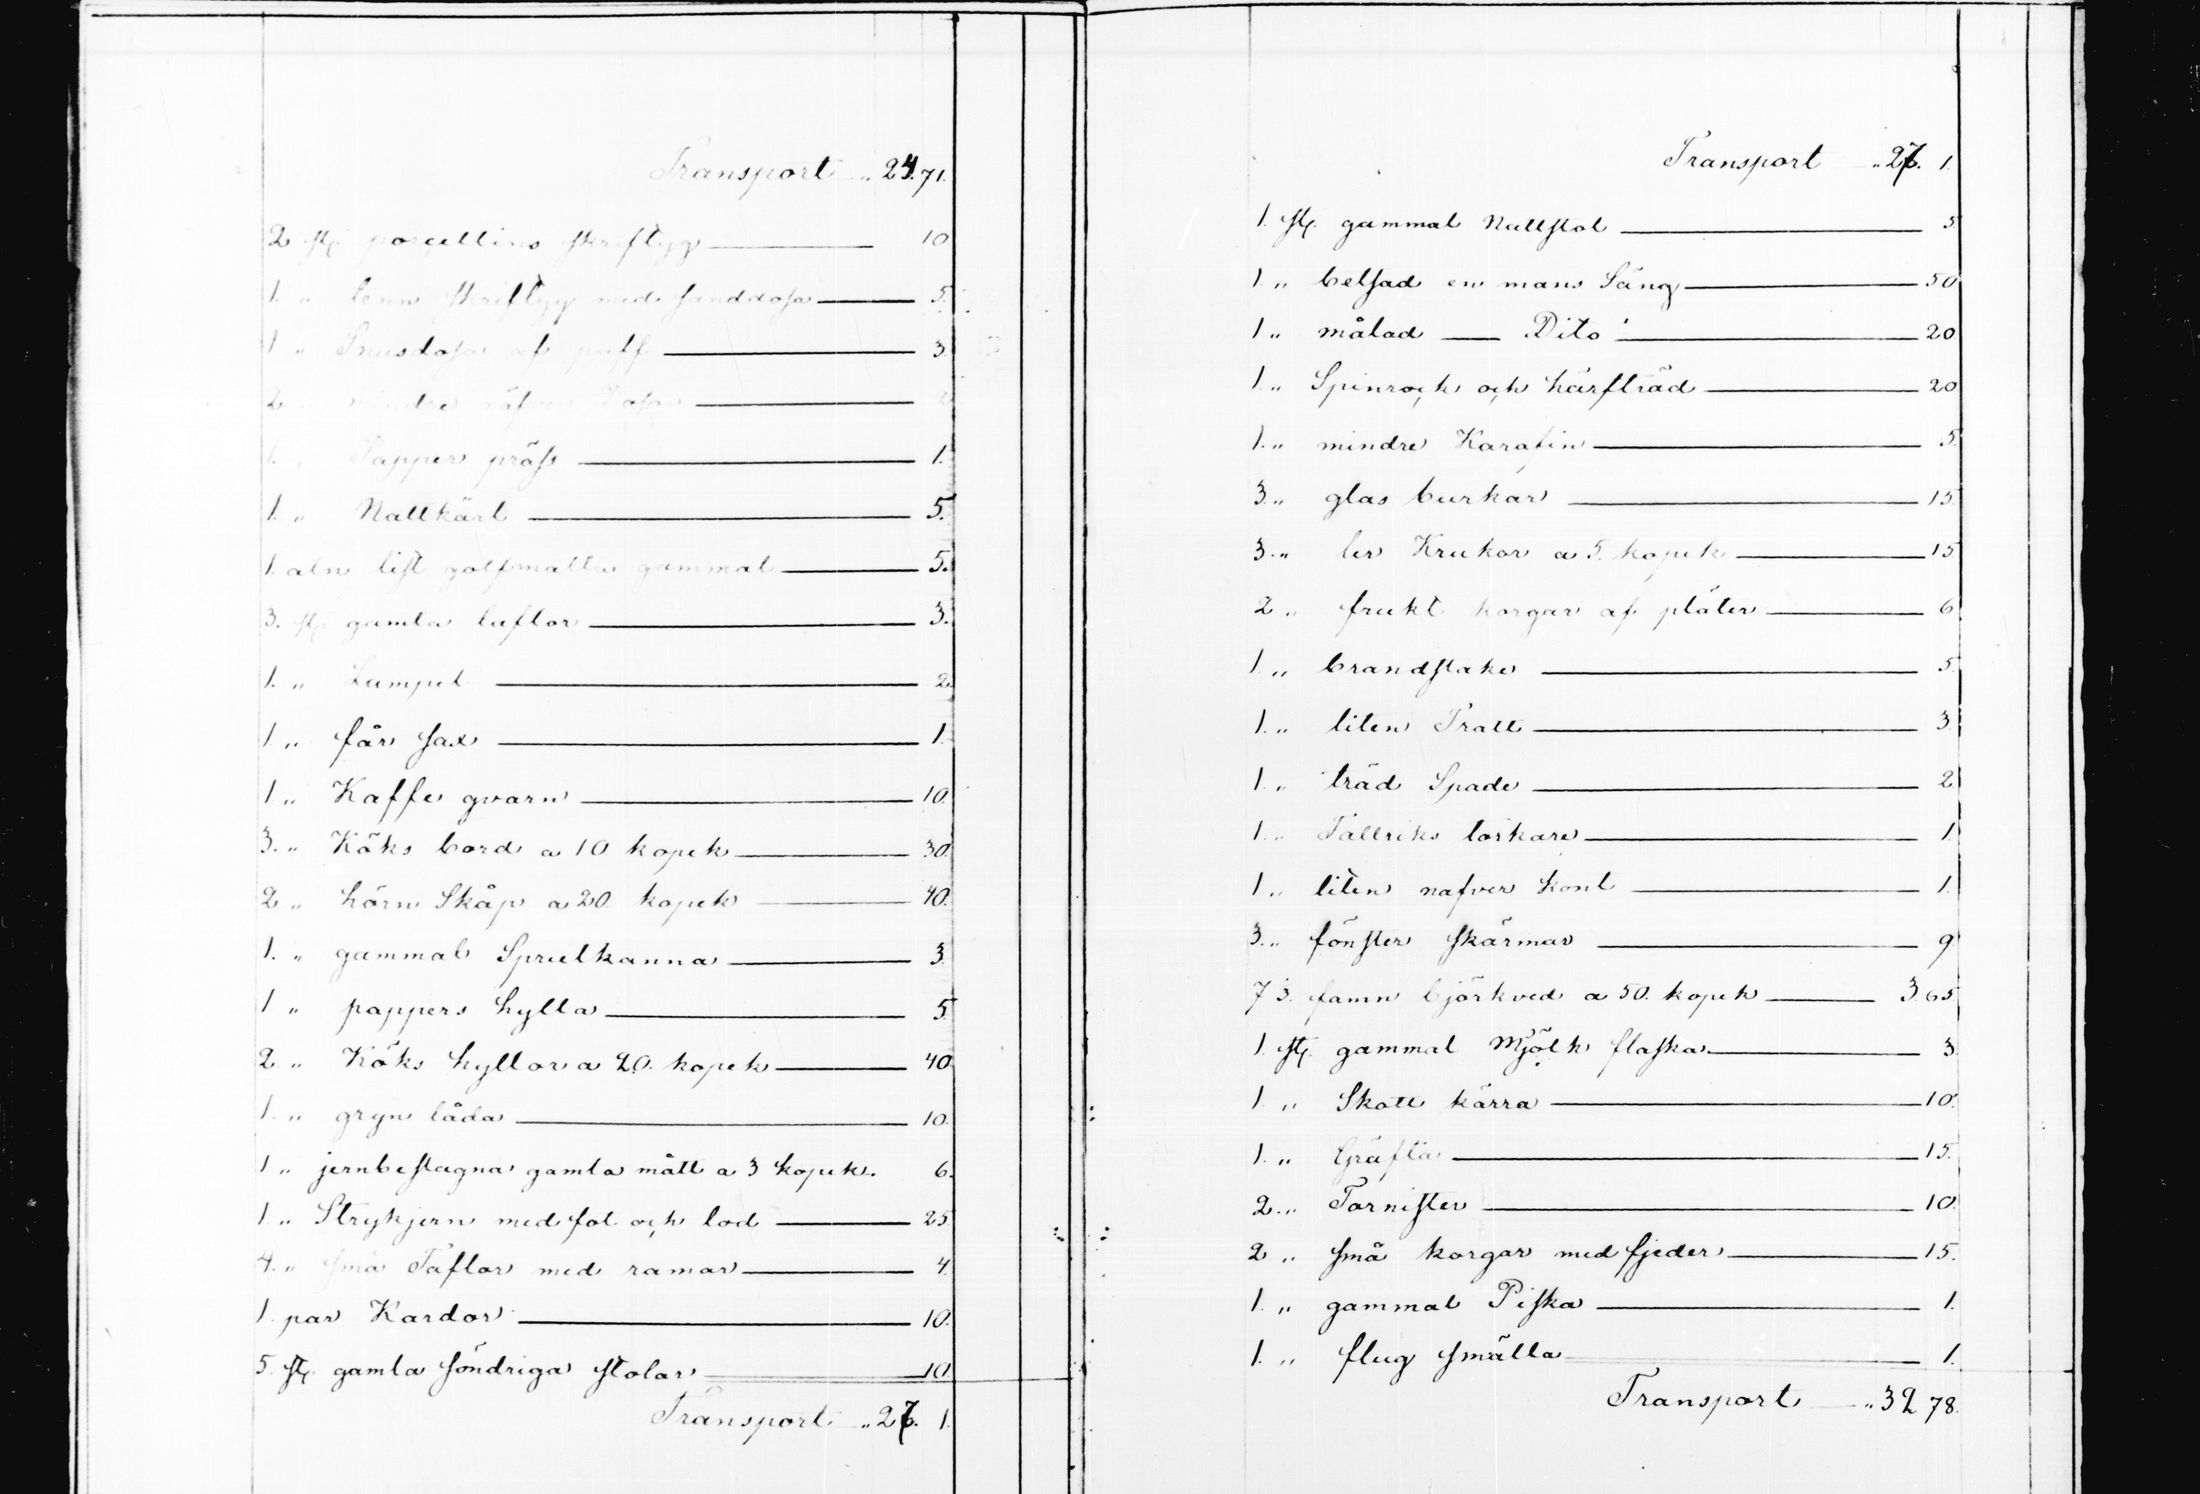 Transport „ 24. 71.
2 st. porcellins skriftyg 10
1. „ lenn skriftyg med sanddosa 5.
1 „ Snusdosa af puff 3
2 „ mindre näfver Dosa 2
1. „ Papper präss 1.
1. „ Nattkärl 5.
1. aln list golfmatta gammal 5.
3. st. gamla luftor 3.
1. „ Lumpel 2.
1. „ får sax 1.
1 „ Kaffe qvarn 10.
3. „ Köks bord a 10 kopek 30.
2 „ hörn Skåp a 20. kopek 40.
1. „ gammal Sprutkanna 3.
1 „ pappers hylla 5
2 „ Köks hyllor a 20. kopek 40
1. „ gryn låda 10.
1 „ jernbeslagna gamla mått a 3 kopek. 6.
1. „ Strykjern med fot och lod 25
4. „ små Taflor med ramar 4.
1. par Kardor 10.
5. st. gamla söndriga stolar 10
Transport „ 27. 1.
Transport „ 27. 1.
1. st. gammal Nattstol 5
1. „ betsad en mans Säng 50
1 „ målad — Dito 20
1. „ Spinrock och härfträd 20
1. „ mindre Karafin 5.
3 „ glas burkar 15
3. „ ler Krukor a 5. kopek 15
2 „ frukt korgar af plåter 6
1. „ brandstake 5.
1. „ liten Tratt 3.
1. „ träd Spade 2
1. „ Tallriks torkare 1.
1. „ liten nafver kont 1.
3. „ fönster skärmar 9
7 3. famn björkved a 50. kopek 3 65
1. st. gammal Mjölk flaska 3
1. „ Skott kärra 10.
1. „ Gräfta 15.
2. „ Tornister 10.
2 „ små korgar med fjeder 15.
1. „ gammal Piska 1.
1. „ flug smälla 1.
Transport „ 32 78.